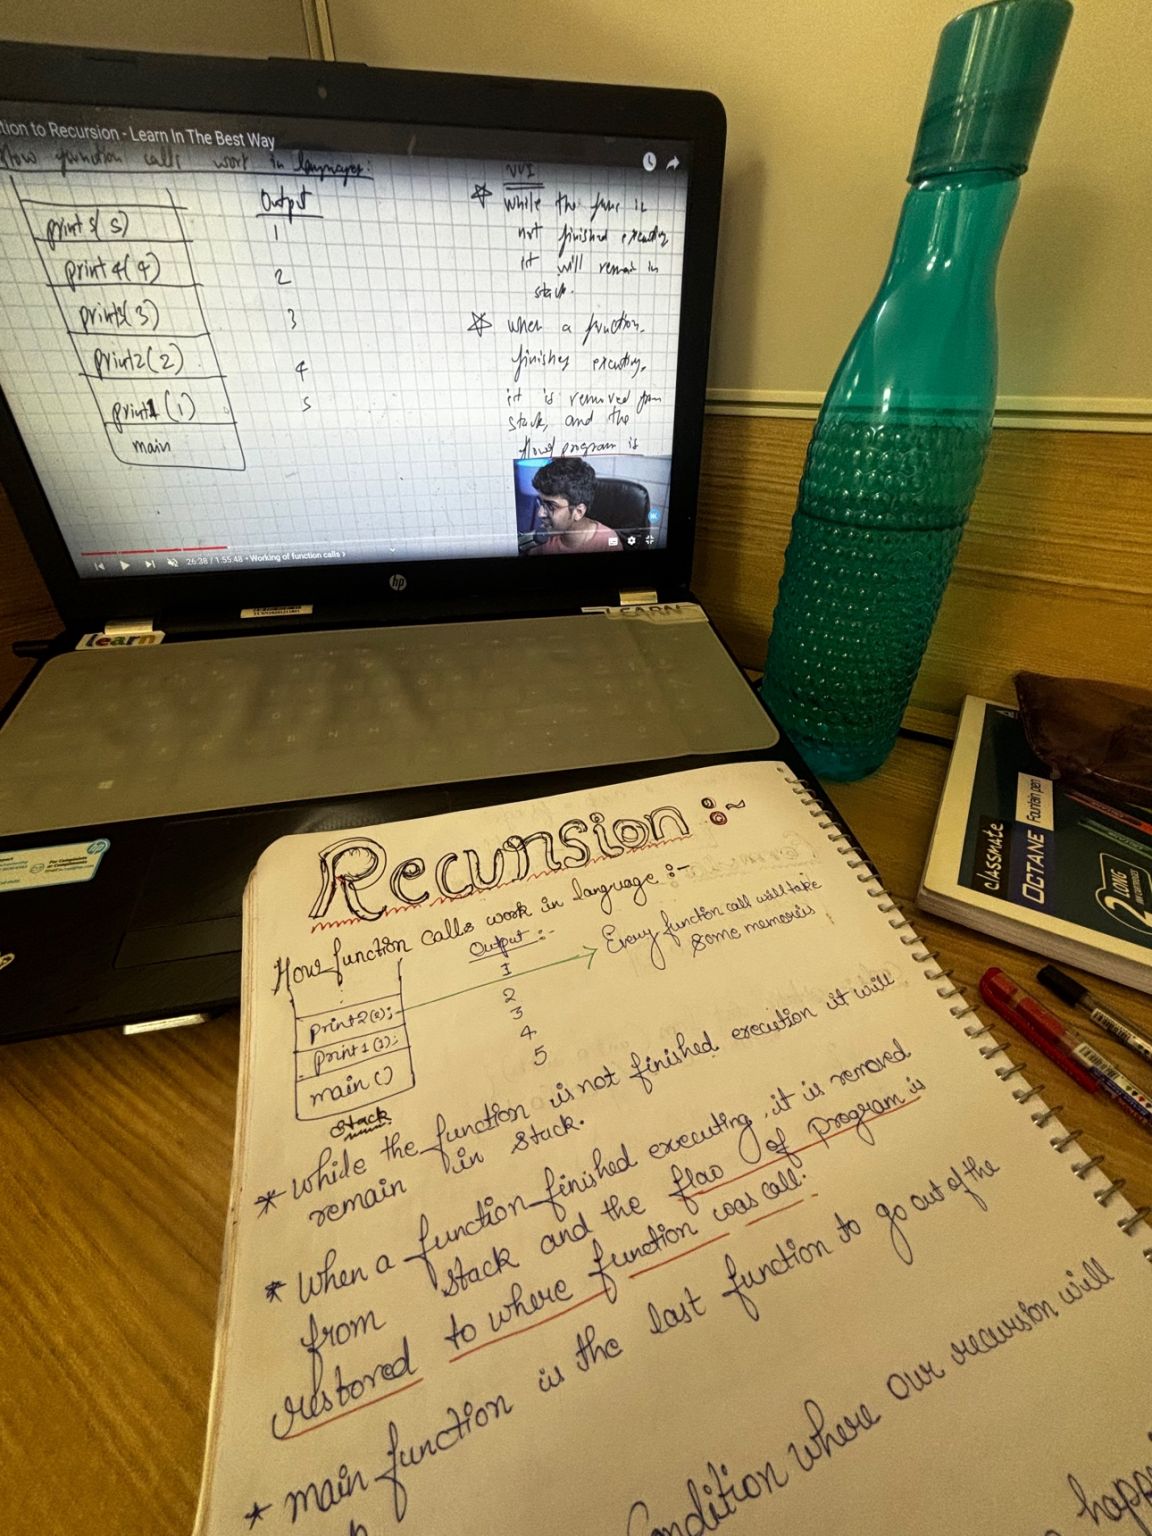 tion to Recursion - Learn In The Best Way
How function calls work in languages:
print5(5)
print4(4)
print3(3)
print2(2)
print1(1)
main
Output
1
2
3
4
5
VVI
while the func is
not finished executing
it will remain in
stack.
when a function
finishes executing,
it is removed from
stack, and the
flow of program is
26:38 / 1:55:48 • Working of function calls ›
hp
learn
LEARN
hp
Recursion :~
How function calls work in language :-
Output :-
1
2
3
4
5
Every function call will take
some memories
print2(2);
print1(1);
main()
stack
* while the function is not finished execution it will
remain in stack.
* When a function finished executing, it is removed
from stack and the flao of program is
restored to where function was call.
* main function is the last function to go out of the
Condition where our recursion will
classmate
OCTANE
Fountain pen
2 LONG